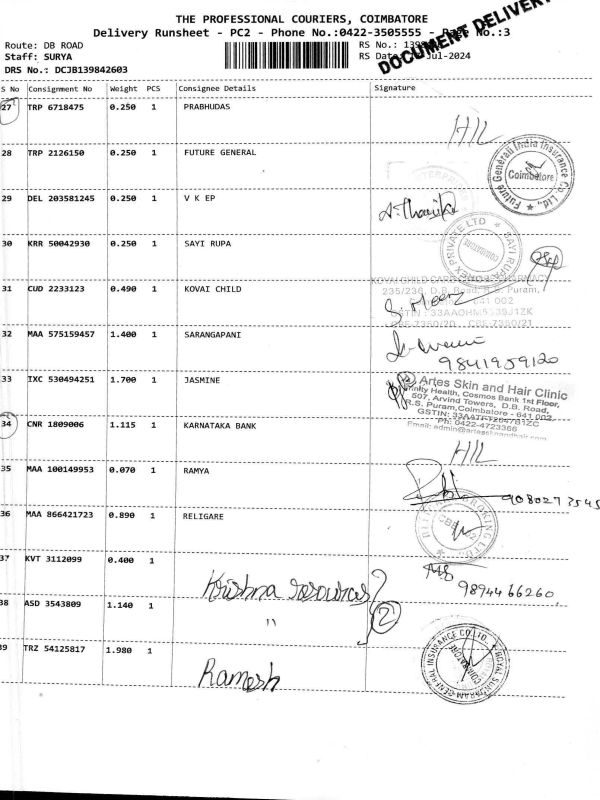 THE PROFESSIONAL COURIERS, COIMBATORE
Delivery Runsheet - PC2 - Phone No.:0422-3505555 - Page No.:3
DOCUMENT DELIVERY
Route: DB ROAD
Staff: SURYA
DRS No.: DCJB139842603
RS No.:
RS Date: Jul-2024
S No Consignment No Weight PCS Consignee Details Signature
27 TRP 6718475 0.250 1 PRABHUDAS
HIL
28 TRP 2126150 0.250 1 FUTURE GENERAL
Future Generali India Insurance Co. Ltd. Coimbatore
29 DEL 203581245 0.250 1 V K EP
30 KRR 50042930 0.250 1 SAYI RUPA
SAYI RUPA PRIVATE LTD
31 CUD 2233123 0.490 1 KOVAI CHILD
KOVAI CHILD CARE PHARMACY
235/236, D.B. Road, R.S. Puram,
641 002
32 MAA 575159457 1.400 1 SARANGAPANI
9841959120
33 IXC 530494251 1.700 1 JASMINE
Artes Skin and Hair Clinic
Trinity Health, Cosmos Bank 1st Floor,
507, Arvind Towers, D.B. Road,
R.S. Puram, Coimbatore - 641 002
Ph: 0422-4723366
34 CNR 1809006 1.115 1 KARNATAKA BANK
HIL
35 MAA 100149953 0.070 1 RAMYA
9080273545
36 MAA 866421723 0.890 1 RELIGARE
37 KVT 3112099 0.400 1
Krishna resources
9894466260
38 ASD 3543809 1.140 1
"
2
39 TRZ 54125817 1.980 1
Ramesh
ROYAL SUNDARAM GENERAL INSURANCE CO. LTD. COIMBATORE